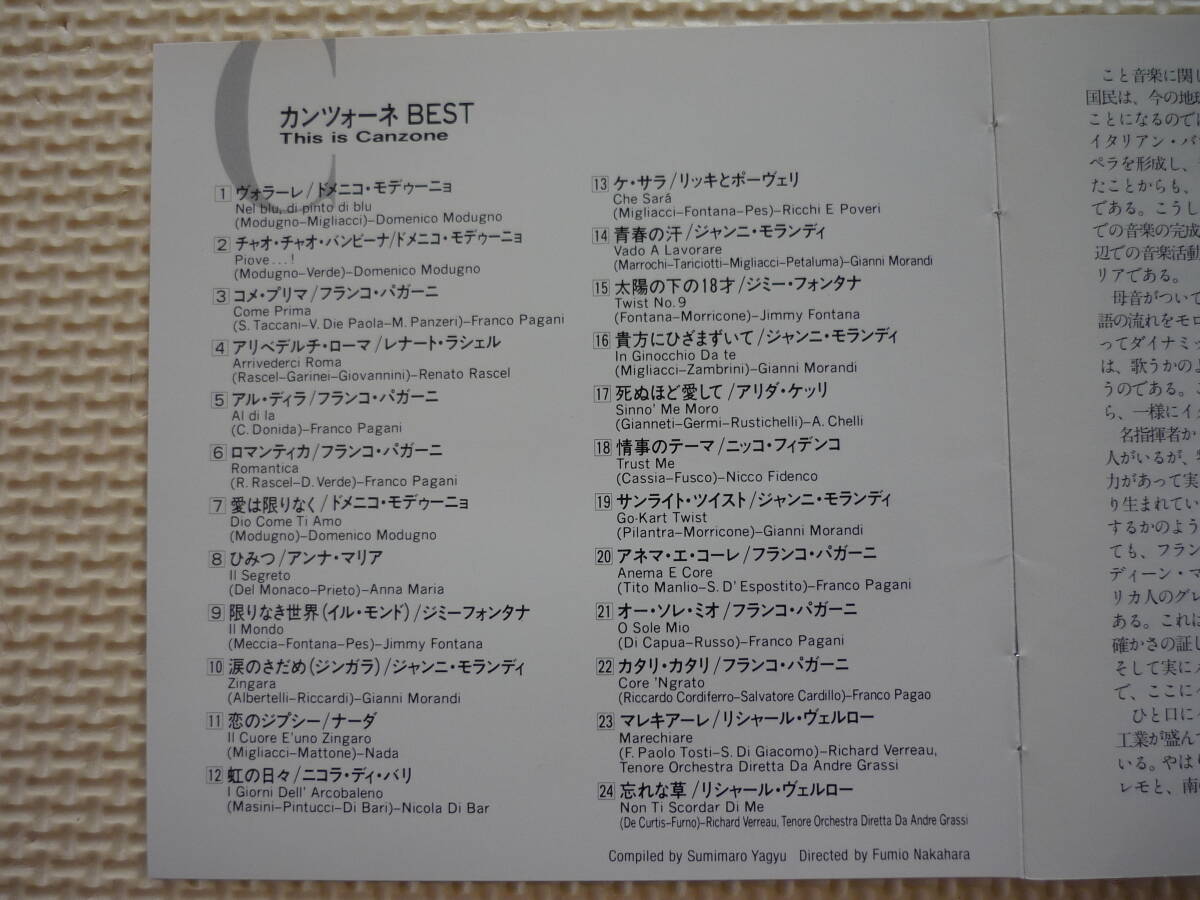 C
カンツォーネ BEST
This is Canzone
1 ヴォラーレ/ドメニコ・モデゥーニョ
Nel blu, di pinto di blu
(Modugno–Migliacci)–Domenico Modugno
2 チャオ・チャオ・バンビーナ/ドメニコ・モデゥーニョ
Piove...!
(Modugno–Verde)–Domenico Modugno
3 コメ・プリマ/フランコ・パガーニ
Come Prima
(S. Taccani–V. Die Paola–M. Panzeri)–Franco Pagani
4 アリベデルチ・ローマ/レナート・ラシェル
Arrivederci Roma
(Rascel–Garinei–Giovannini)–Renato Rascel
5 アル・ディラ/フランコ・パガーニ
Al di la
(C. Donida)–Franco Pagani
6 ロマンティカ/フランコ・パガーニ
Romantica
(R. Rascel–D. Verde)–Franco Pagani
7 愛は限りなく/ドメニコ・モデゥーニョ
Dio Come Ti Amo
(Modugno)–Domenico Modugno
8 ひみつ/アンナ・マリア
Il Segreto
(Del Monaco–Prieto)–Anna Maria
9 限りなき世界(イル・モンド)/ジミーフォンタナ
Il Mondo
(Meccia–Fontana–Pes)–Jimmy Fontana
10 涙のさだめ(ジンガラ)/ジャンニ・モランディ
Zingara
(Albertelli–Riccardi)–Gianni Morandi
11 恋のジプシー/ナーダ
Il Cuore E'uno Zingaro
(Migliacci–Mattone)–Nada
12 虹の日々/ニコラ・ディ・バリ
I Giorni Dell' Arcobaleno
(Masini–Pintucci–Di Bari)–Nicola Di Bar
13 ケ・サラ/リッキとポーヴェリ
Che Sará
(Migliacci–Fontana–Pes)–Ricchi E Poveri
14 青春の汗/ジャンニ・モランディ
Vado A Lavorare
(Marrochi–Tariciotti–Migliacci–Petaluma)–Gianni Morandi
15 太陽の下の18才/ジミー・フォンタナ
Twist No. 9
(Fontana–Morricone)–Jimmy Fontana
16 貴方にひざまずいて/ジャンニ・モランディ
In Ginocchio Da te
(Migliacci–Zambrini)–Gianni Morandi
17 死ぬほど愛して/アリダ・ケッリ
Sinno' Me Moro
(Gianneti–Germi–Rustichelli)–A. Chelli
18 情事のテーマ/ニッコ・フィデンコ
Trust Me
(Cassia–Fusco)–Nicco Fidenco
19 サンライト・ツイスト/ジャンニ・モランディ
Go-Kart Twist
(Pilantra–Morricone)–Gianni Morandi
20 アネマ・エ・コーレ/フランコ・パガーニ
Anema E Core
(Tito Manlio–S. D' Espostito)–Franco Pagani
21 オー・ソレ・ミオ/フランコ・パガーニ
O Sole Mio
(Di Capua–Russo)–Franco Pagani
22 カタリ・カタリ/フランコ・パガーニ
Core 'Ngrato
(Riccardo Cordiferro–Salvatore Cardillo)–Franco Pagao
23 マレキアーレ/リシャール・ヴェルロー
Marechiare
(F. Paolo Tosti–S. Di Giacomo)–Richard Verreau,
Tenore Orchestra Diretta Da Andre Grassi
24 忘れな草/リシャール・ヴェルロー
Non Ti Scordar Di Me
(De Curtis–Furno)–Richard Verreau, Tenore Orchestra Diretta Da Andre Grassi
Compiled by Sumimaro Yagyu Directed by Fumio Nakahara
こと音楽に関し
国民は、今の地球
ことになるのでは
イタリアン・バ
ペラを形成し、
たことからも、
である。こうし
での音楽の完成
辺での音楽活動
リアである。
母音がついて
語の流れをモロ
ってダイナミッ
は、歌うかのよ
うのである。こ
ら、一様にイタ
名指揮者か
人がいるが、
力があって実
り生まれてい
するかのよう
ても、フラン
ディーン・マ
リカ人のグレ
ある。これは
確かさの証し
そして実に
で、ここに
ひと口に
工業が盛んで
いる。やはり
レモと、南